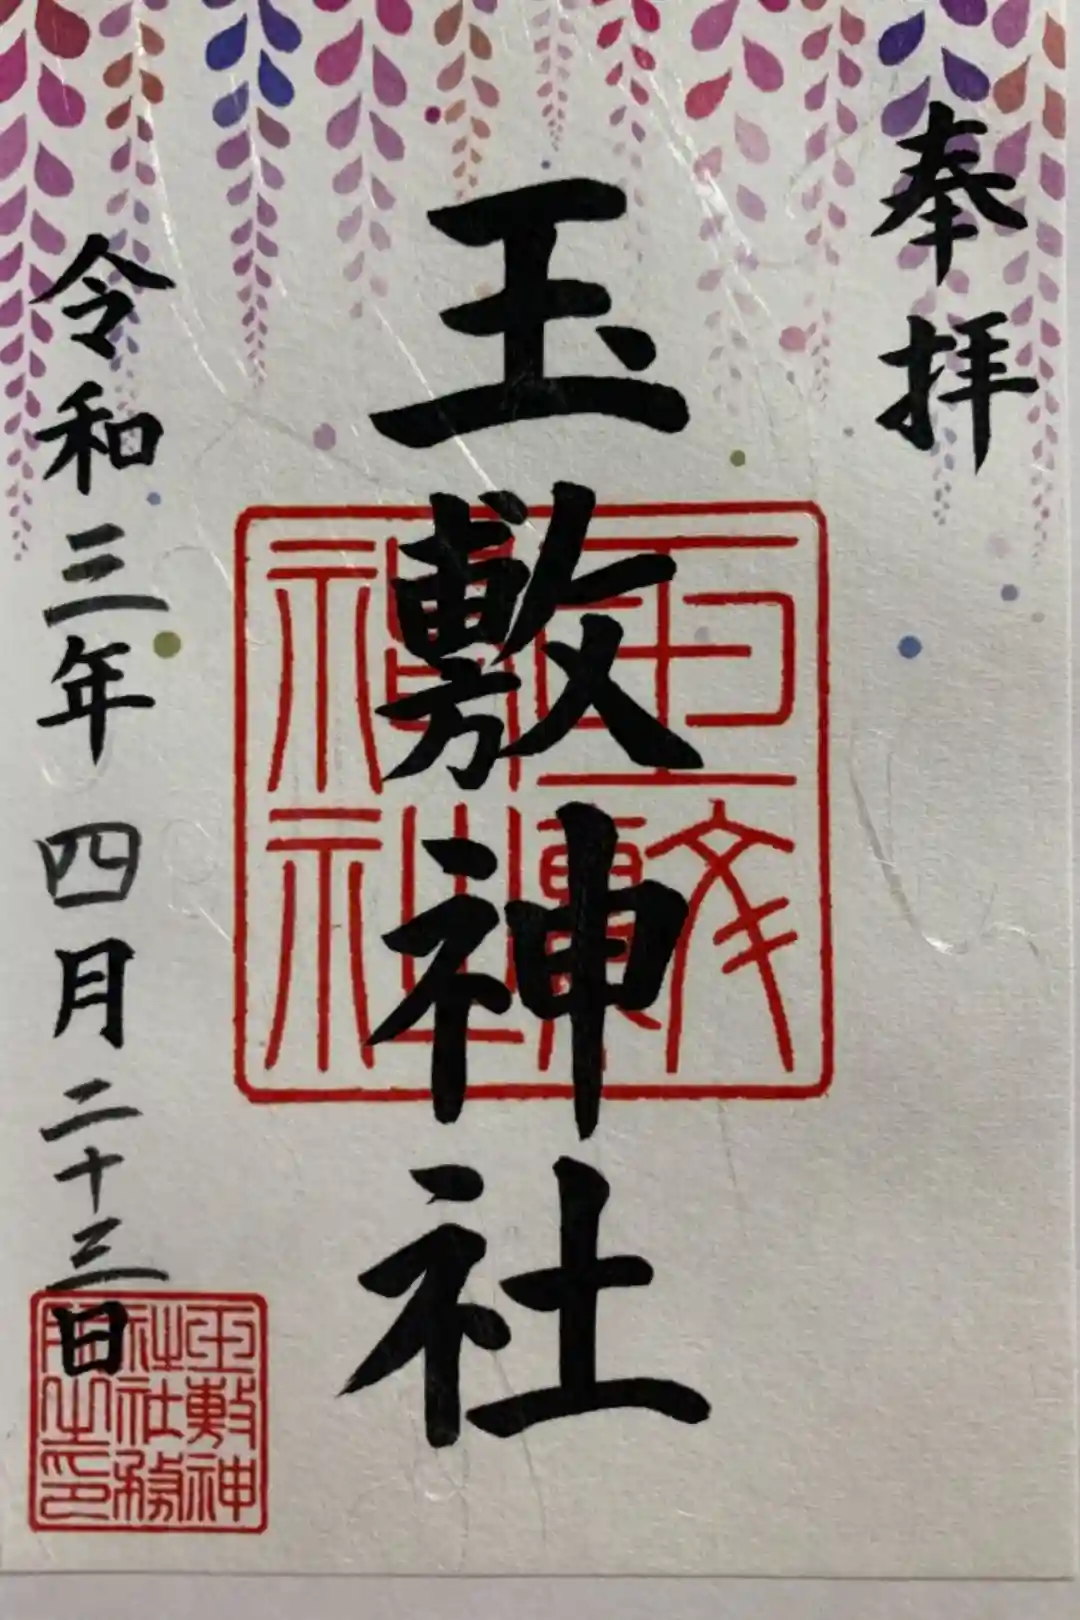 奉拝
玉敷神社
玉敷神社
令和三年四月二十三日
玉敷神
社社務
所之印